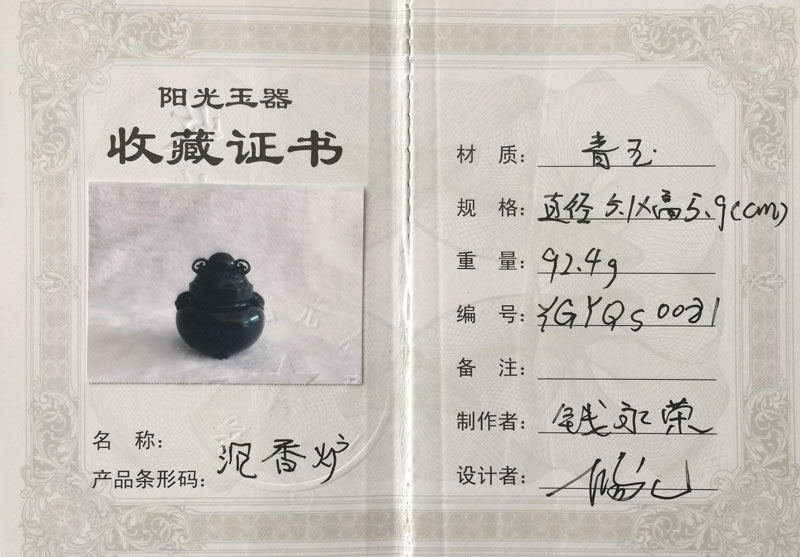 阳光玉器
收藏证书
名 称：
产品条形码：
沉香炉
材 质：青玉
规 格：直径5.1X高5.9(cm)
重 量：92.4g
编 号：YGYQS0021
备 注：
制作者：钱永荣
设计者：